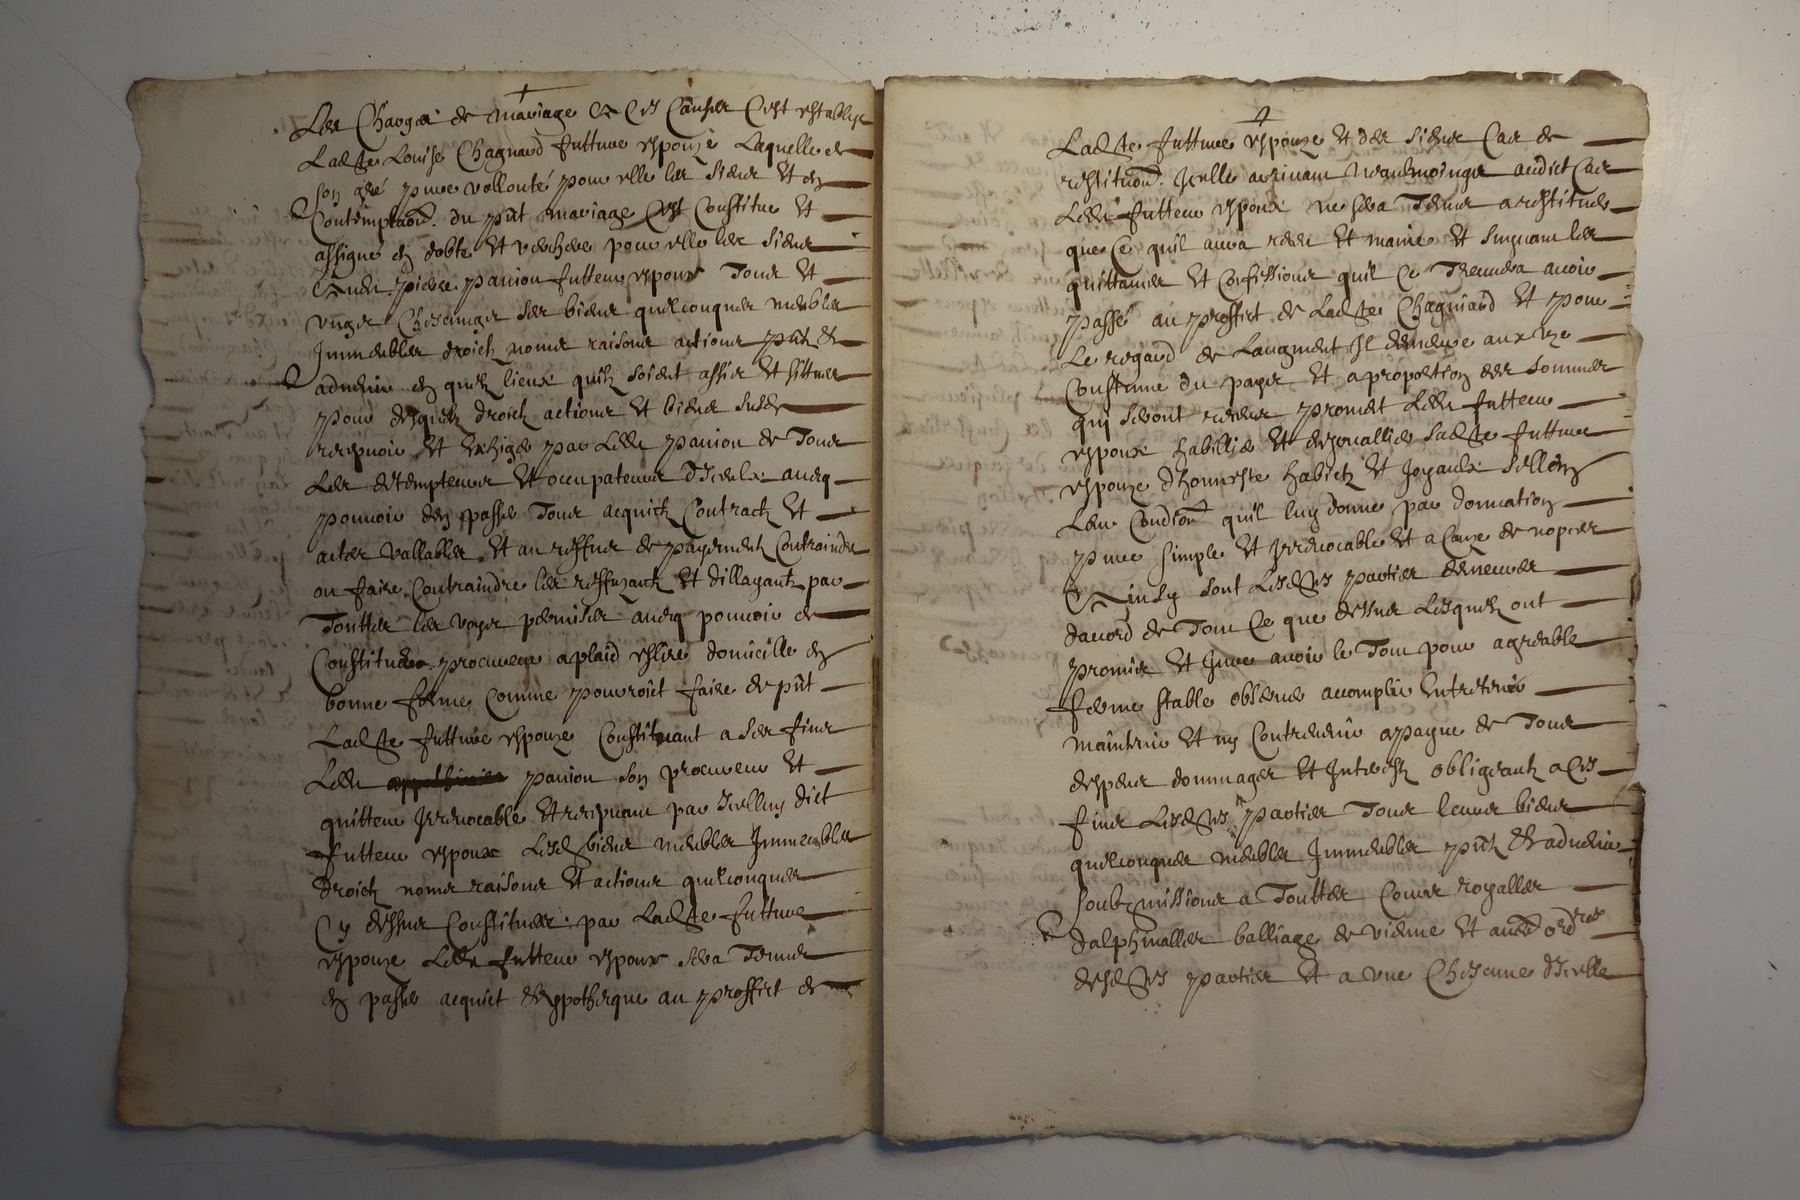 Les Charges de mariage & Ces Causes C'est establye
Ladte Louise Chagnard futture espouze Laquelle de
son gré pure vollonté pour elle les siens et en
Contemplaon. du pnt mariage C'est Constitue et
assigne en dobte et verchere pour elle les siens
Audit pierre panion futteur espoux Tous et
Ungs Chescungs ses biens quelconques meubles
Immeubles droictz noms raisons actions pntz &
advenir en quelz lieux quilz soient assis et sittues
pour desquelz droictz actions et biens susdz
recepvoir et exhiger par Ledt panion de Tous
Les detempteurs et occupateurs d'Iceulx avecq
pouvoir den passer Tous acquictz Contractz et
actes vallables et au reffus de payementz Contraindre
ou faire Contraindre les reffuzantz et dillayantz par
Touttes les voyes permises avecq pouvoir de
Constituer procureur a plaid eslire domicille en
bonne forme Comme pourroict faire de pnt
Ladte futture espouze Constituant a Ses fins
Ledt panion son procureur et
quitteur Irrevocable et recepvant par Icelluy dict
futteur espoux Lesdz biens meubles Immeubles
droictz noms raisons et actions quelconques
Cy dessus Constitues par Ladte futture
espouze Ledt futteur espoux sera Tenus
en passer acquict & ypotheque au proffict de
Ladte futture espouze et des siens Cas de
restituon. Icelle arrivant neanlmoingts audict Cas
Ledt futteur espoux ne sera Tenus a restituer
que Ce quil aura receu et manie et suyvant les
quittances et Confessions quil Ce Treuvera avoir
passé au proffict de Ladte Chagniard et pour
Le regard de Laugment Il demeure aux Us
Coustume du pays et a proportion des sommes
qui seront receues promet Ledt futteur
espoux habillier et enjouallier Ladte futture
espouze d'honneste habictz et Joyaulx sellon
Leur Condion quil luy donne par donnation
pure simple et Irrevocable et a Cauze de nopces
Ainsy sont Lesdtes parties demeures
daccord de Tout Ce que dessus Lesquelz ont
promis et Jure avoir le Tout pour agreable
ferme stable observer accomplir Entretenir
maintenir et ny Contrevenir a payne de Tous
despens dommages et Interestz obligeantz a Ces
fins Lesdtes parties Tous leurs biens
quelconques meubles Immeubles pntz & advenir
soubzmissions a Touttes Cours royalles
dalphinalles balliage de vienne et aues ordres
desdtes parties et a une Chescune d'Icelle